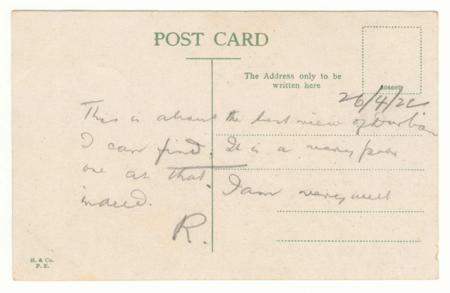 POST CARD
The Address only to be
written here
26/4/22
This is about the best view of Durban
I can find. It is a very poor
one at that. I am very well
indeed.
R.
H. & Co.
P. E.